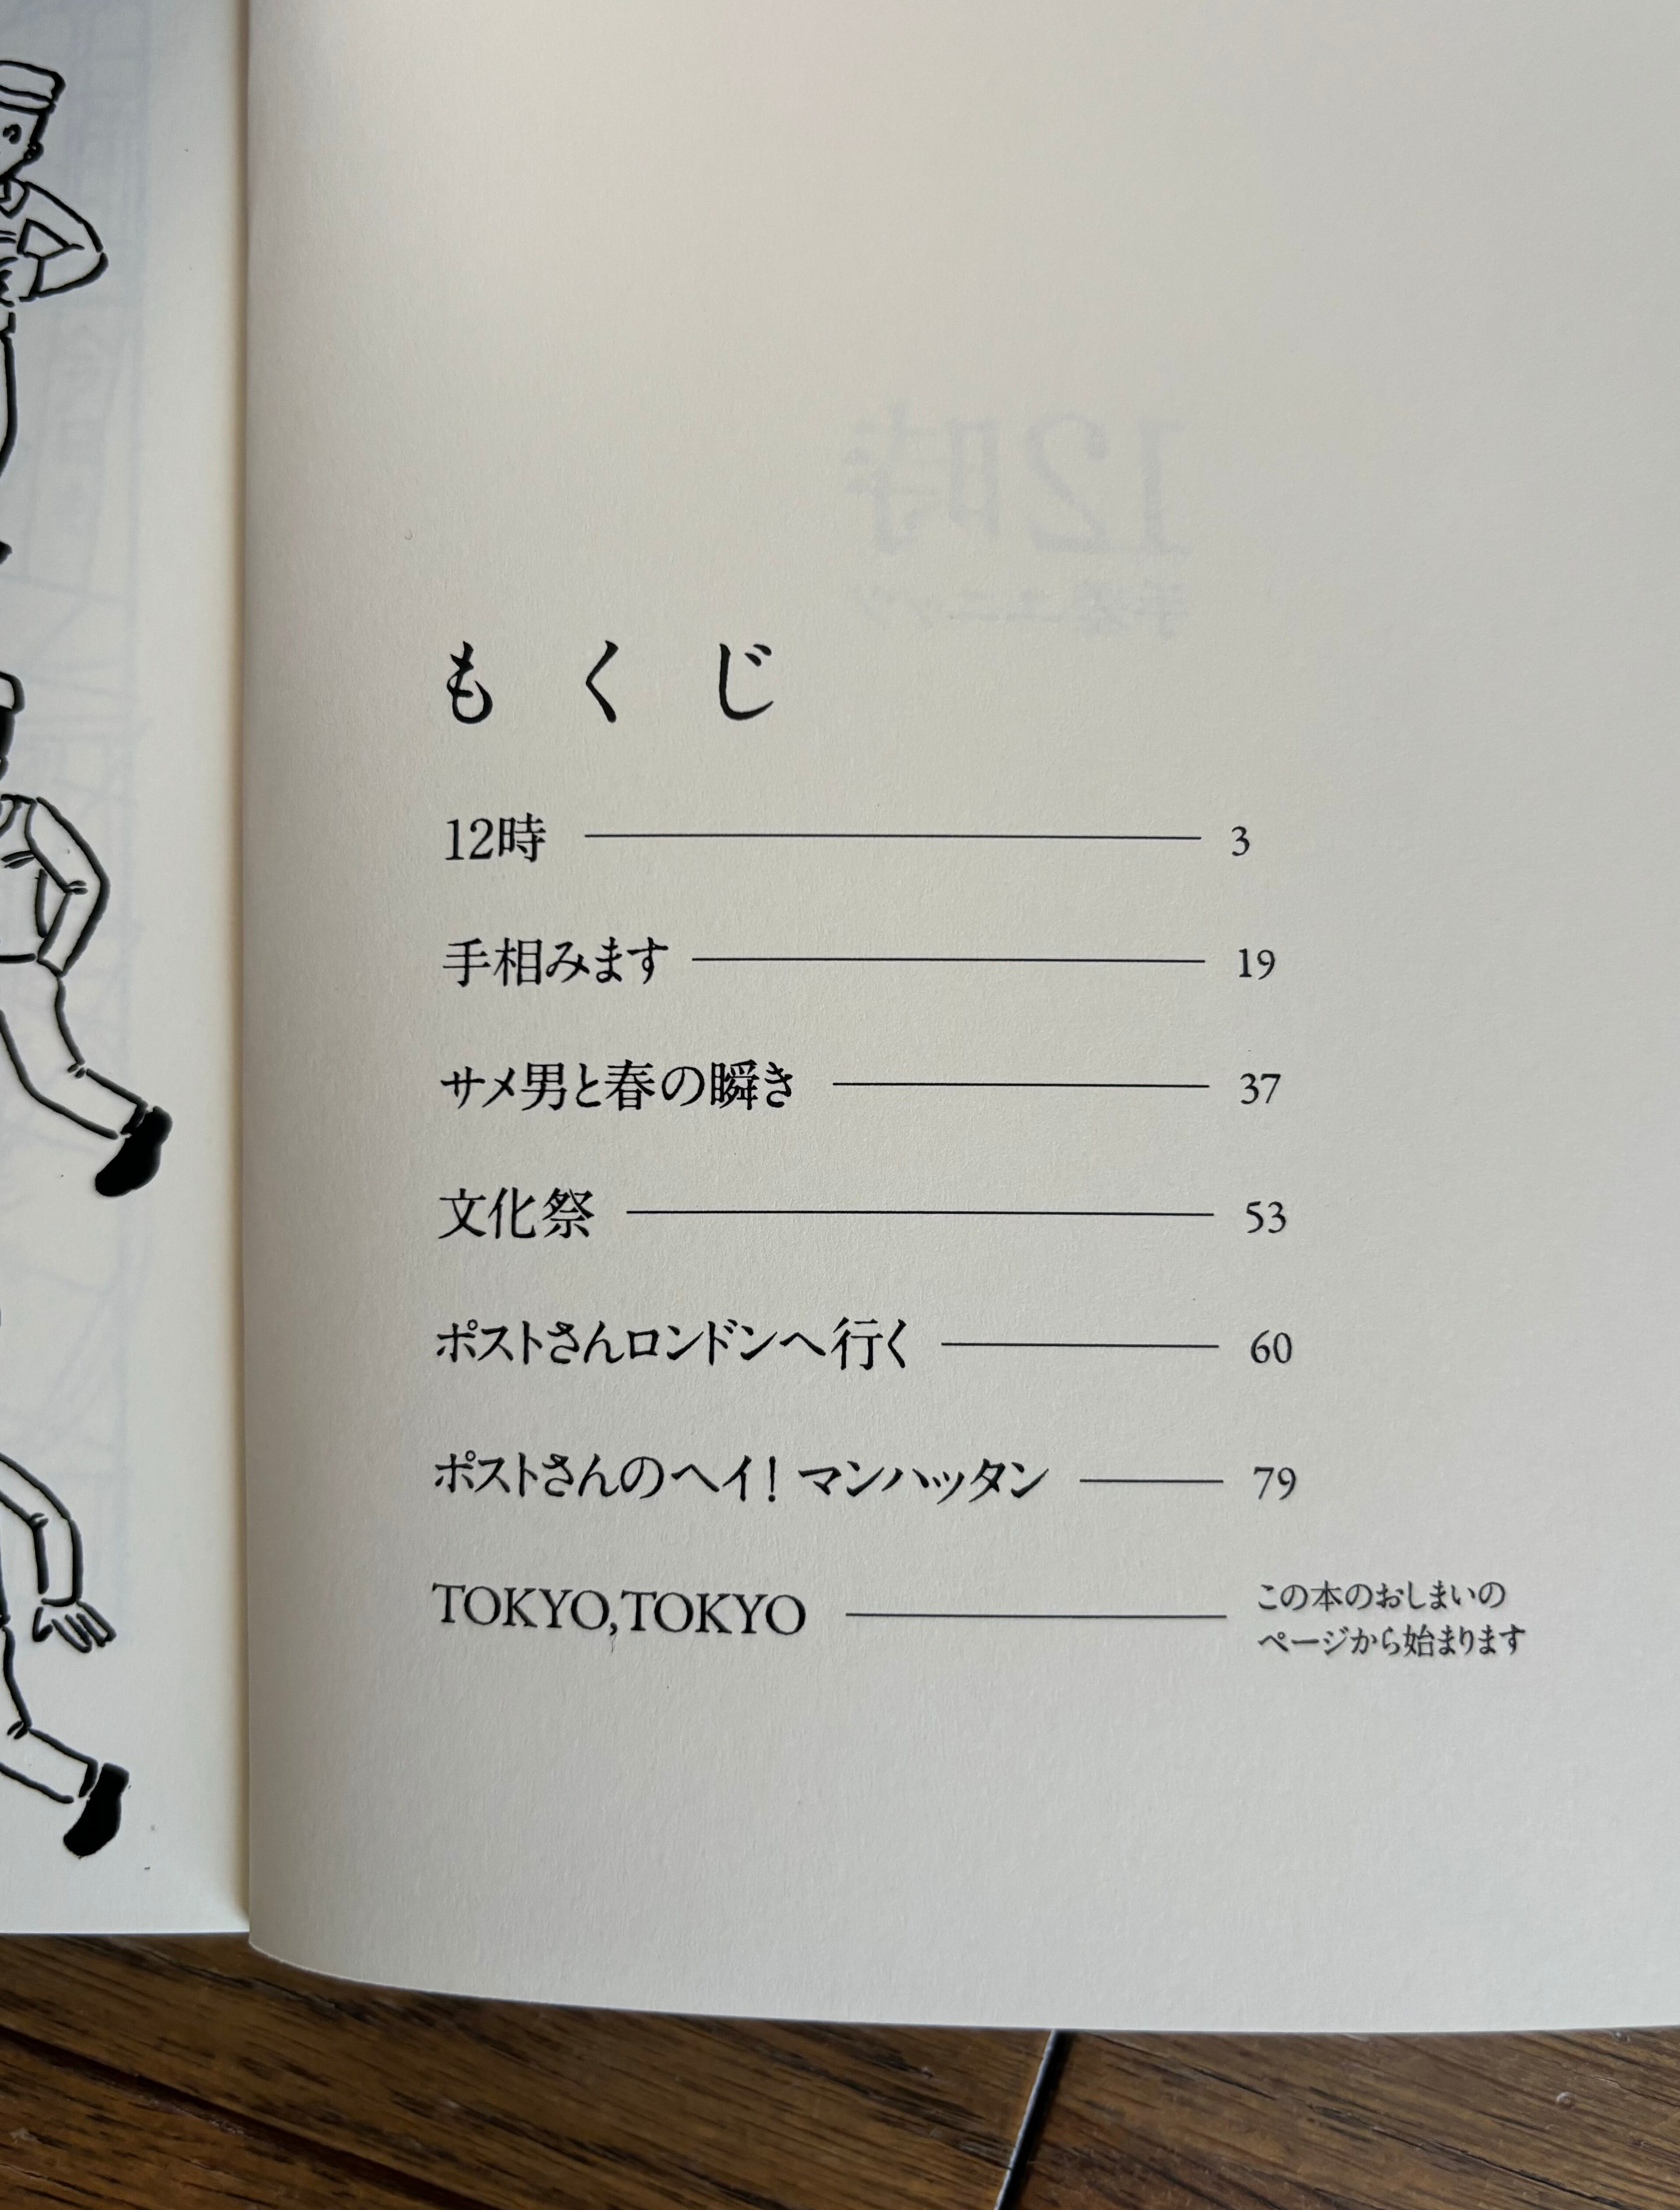 もくじ
12時 3
手相みます 19
サメ男と春の瞬き 37
文化祭 53
ポストさんロンドンへ行く 60
ポストさんのヘイ！マンハッタン 79
TOKYO,TOKYO この本のおしまいの
ページから始まります
12時